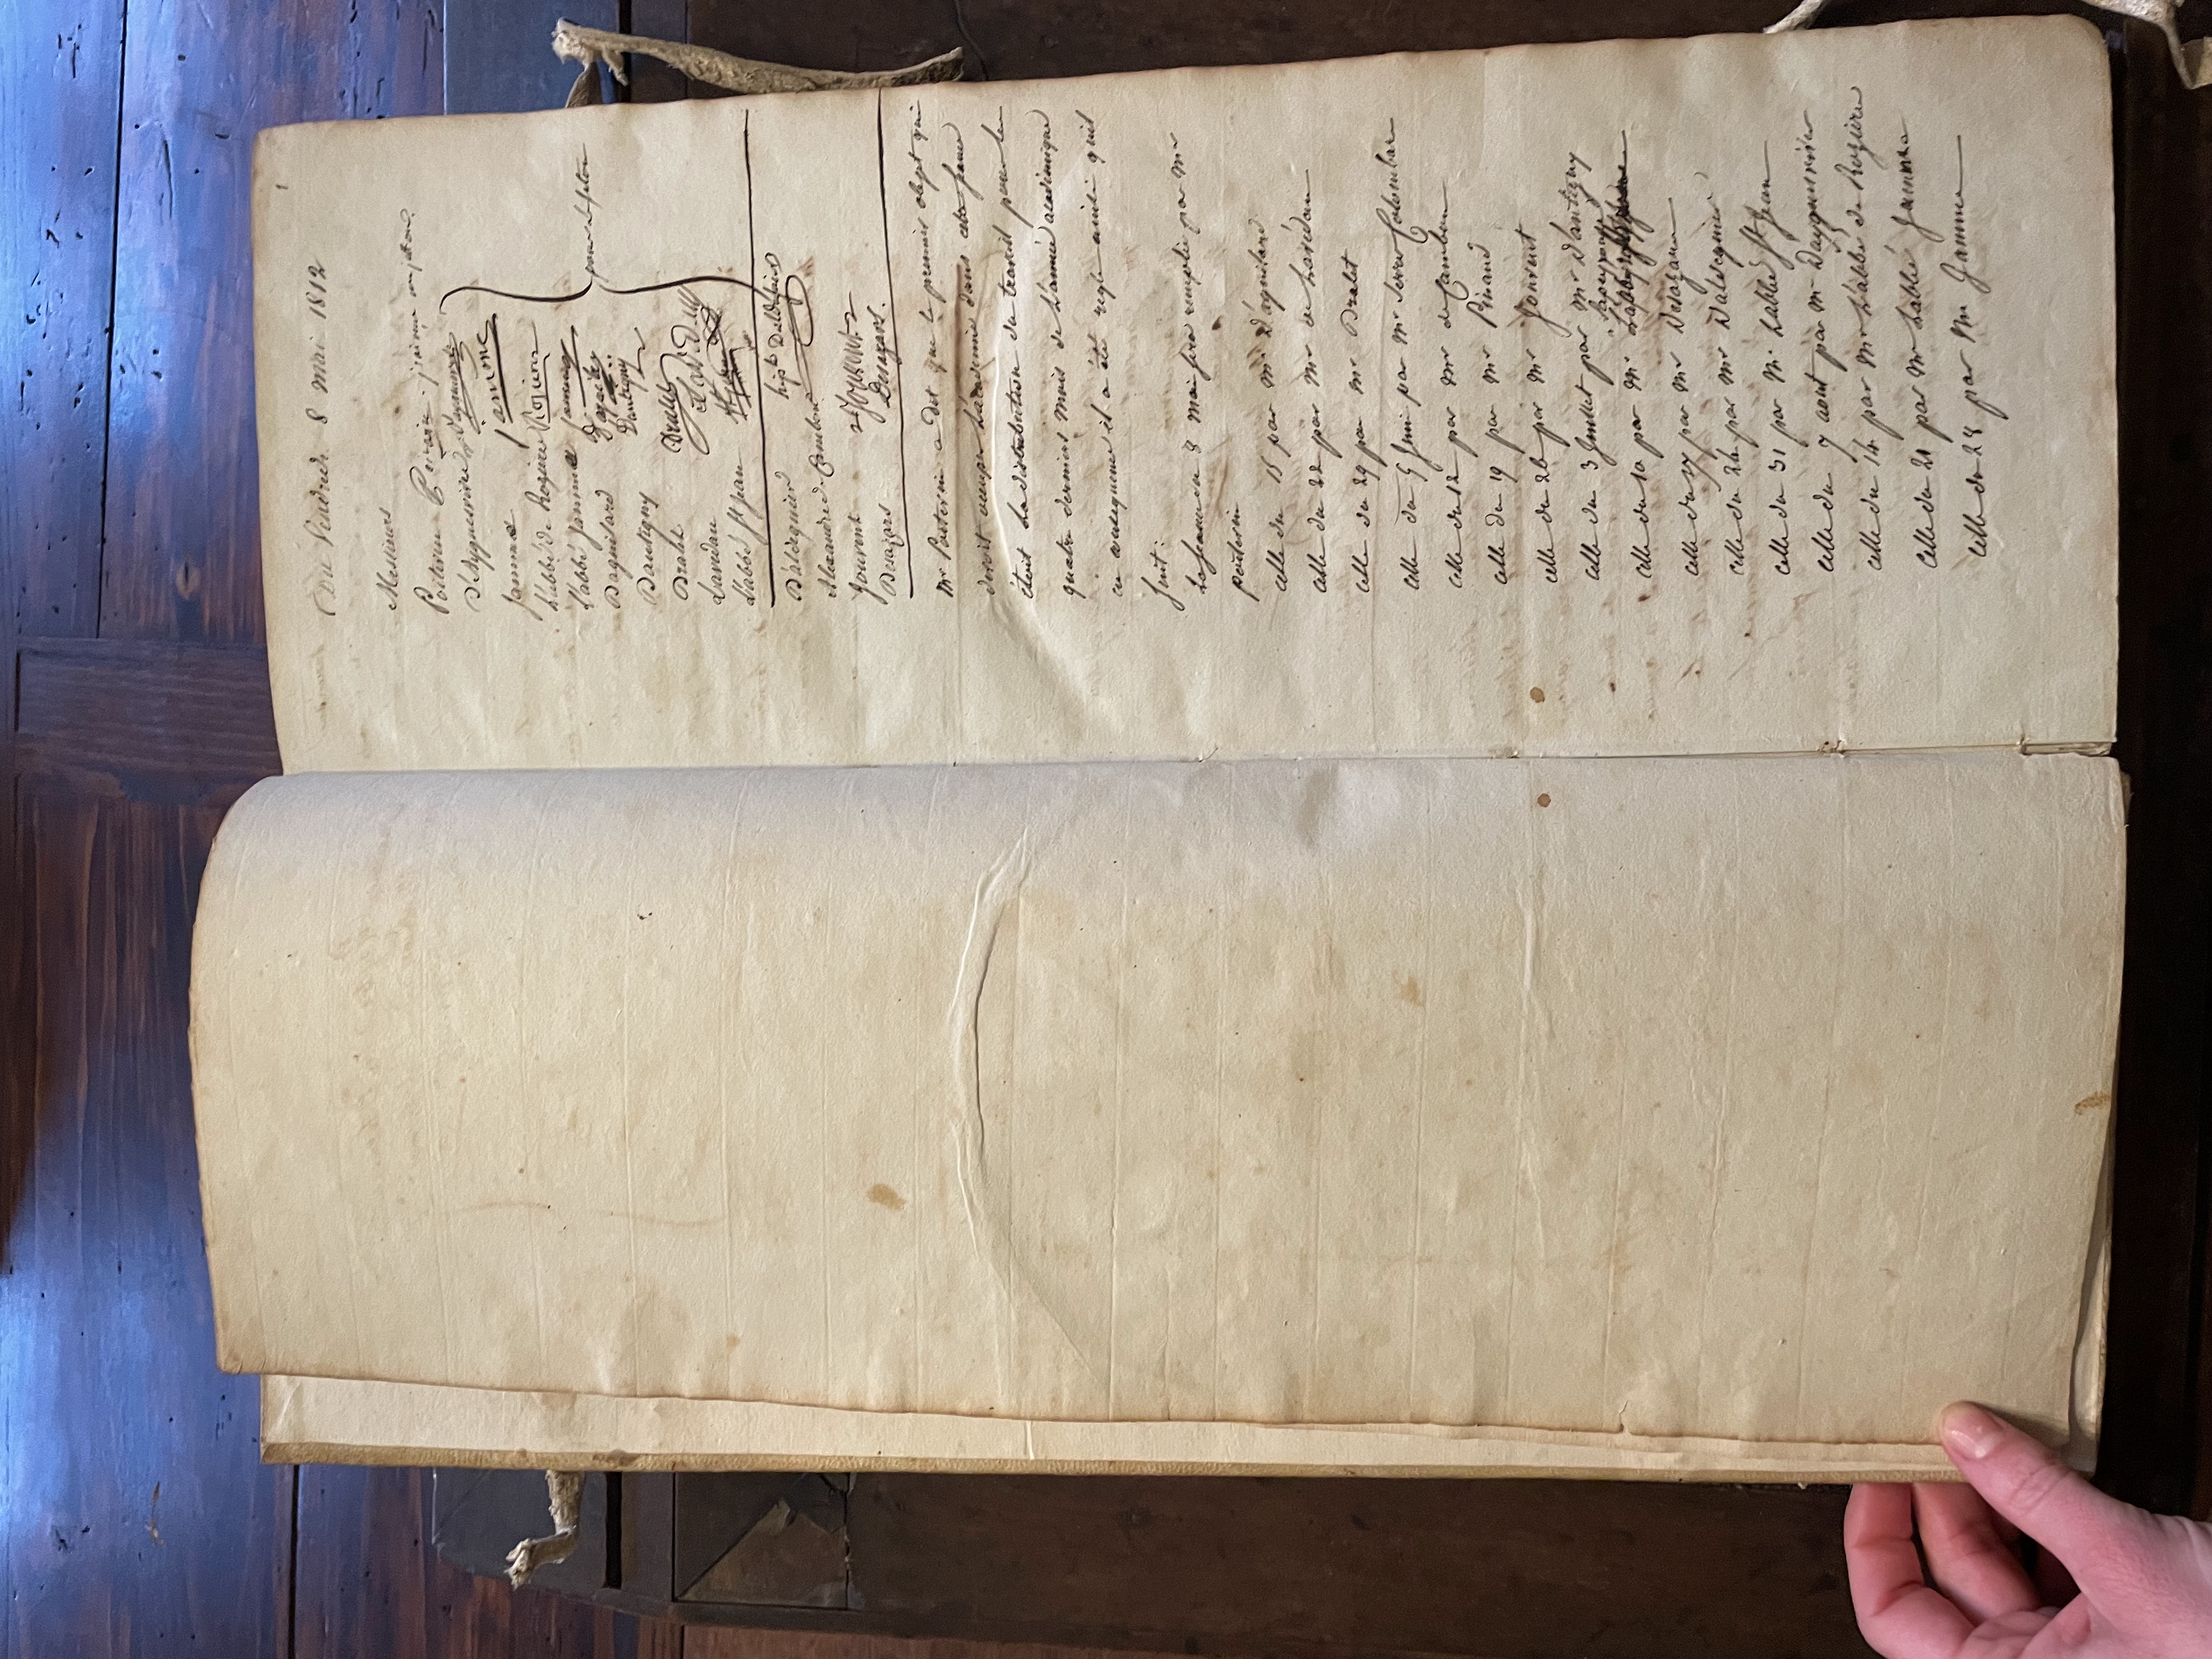 1
Du Vendredi 8 mai 1812
Messieurs
Poitevin Poitevin
D'aiguesvives Daguesvives
Jamme Jamme
L'abbé de Rozieres Rozieres
L'abbé Jamme Jamme
D'aguilard Daguilar
Dantigny Dantigny
Dralet Dralet
Landau
L'abbé St jean
D'aldeguier hipte Daldeguier
Alexandre Cambon
Jouvent Jouvent
Desazars Desazars.
Mr Poitevin a dit que le premier objet qui
devoit occuper L'academie dans cette séance
étoit La distribution du travail pour les
quatre derniers mois de L'année academique
en consequence il a été reglé ainsi quil
suit:
La séance du 8 mai sera remplie par Mr
poitevin
celle du 15 par Mr D'aguilard
celle du 22 par Mr de Laredan
celle du 29 par Mr Dralet
celle du 5 Juin par Mr Serre Colombar
celle du 12 par Mr de Cambon
celle du 19 par Mr Pinaud
celle du 26 par Mr Jouvent
celle du 3 Juillet par Mr D'antigny
celle du 10 par Mr
celle du 17 par Mr Desazars
celle du 24 par Mr D'aldeguier
celle du 31 par Mr L'abbé St Jean
celle du 7 aout par Mr D'ayguesvives
celle du 14 par Mr L'abbé de Rozieres
celle du 21 par Mr L'abbé Jamme
celle du 28 par Mr Jamme